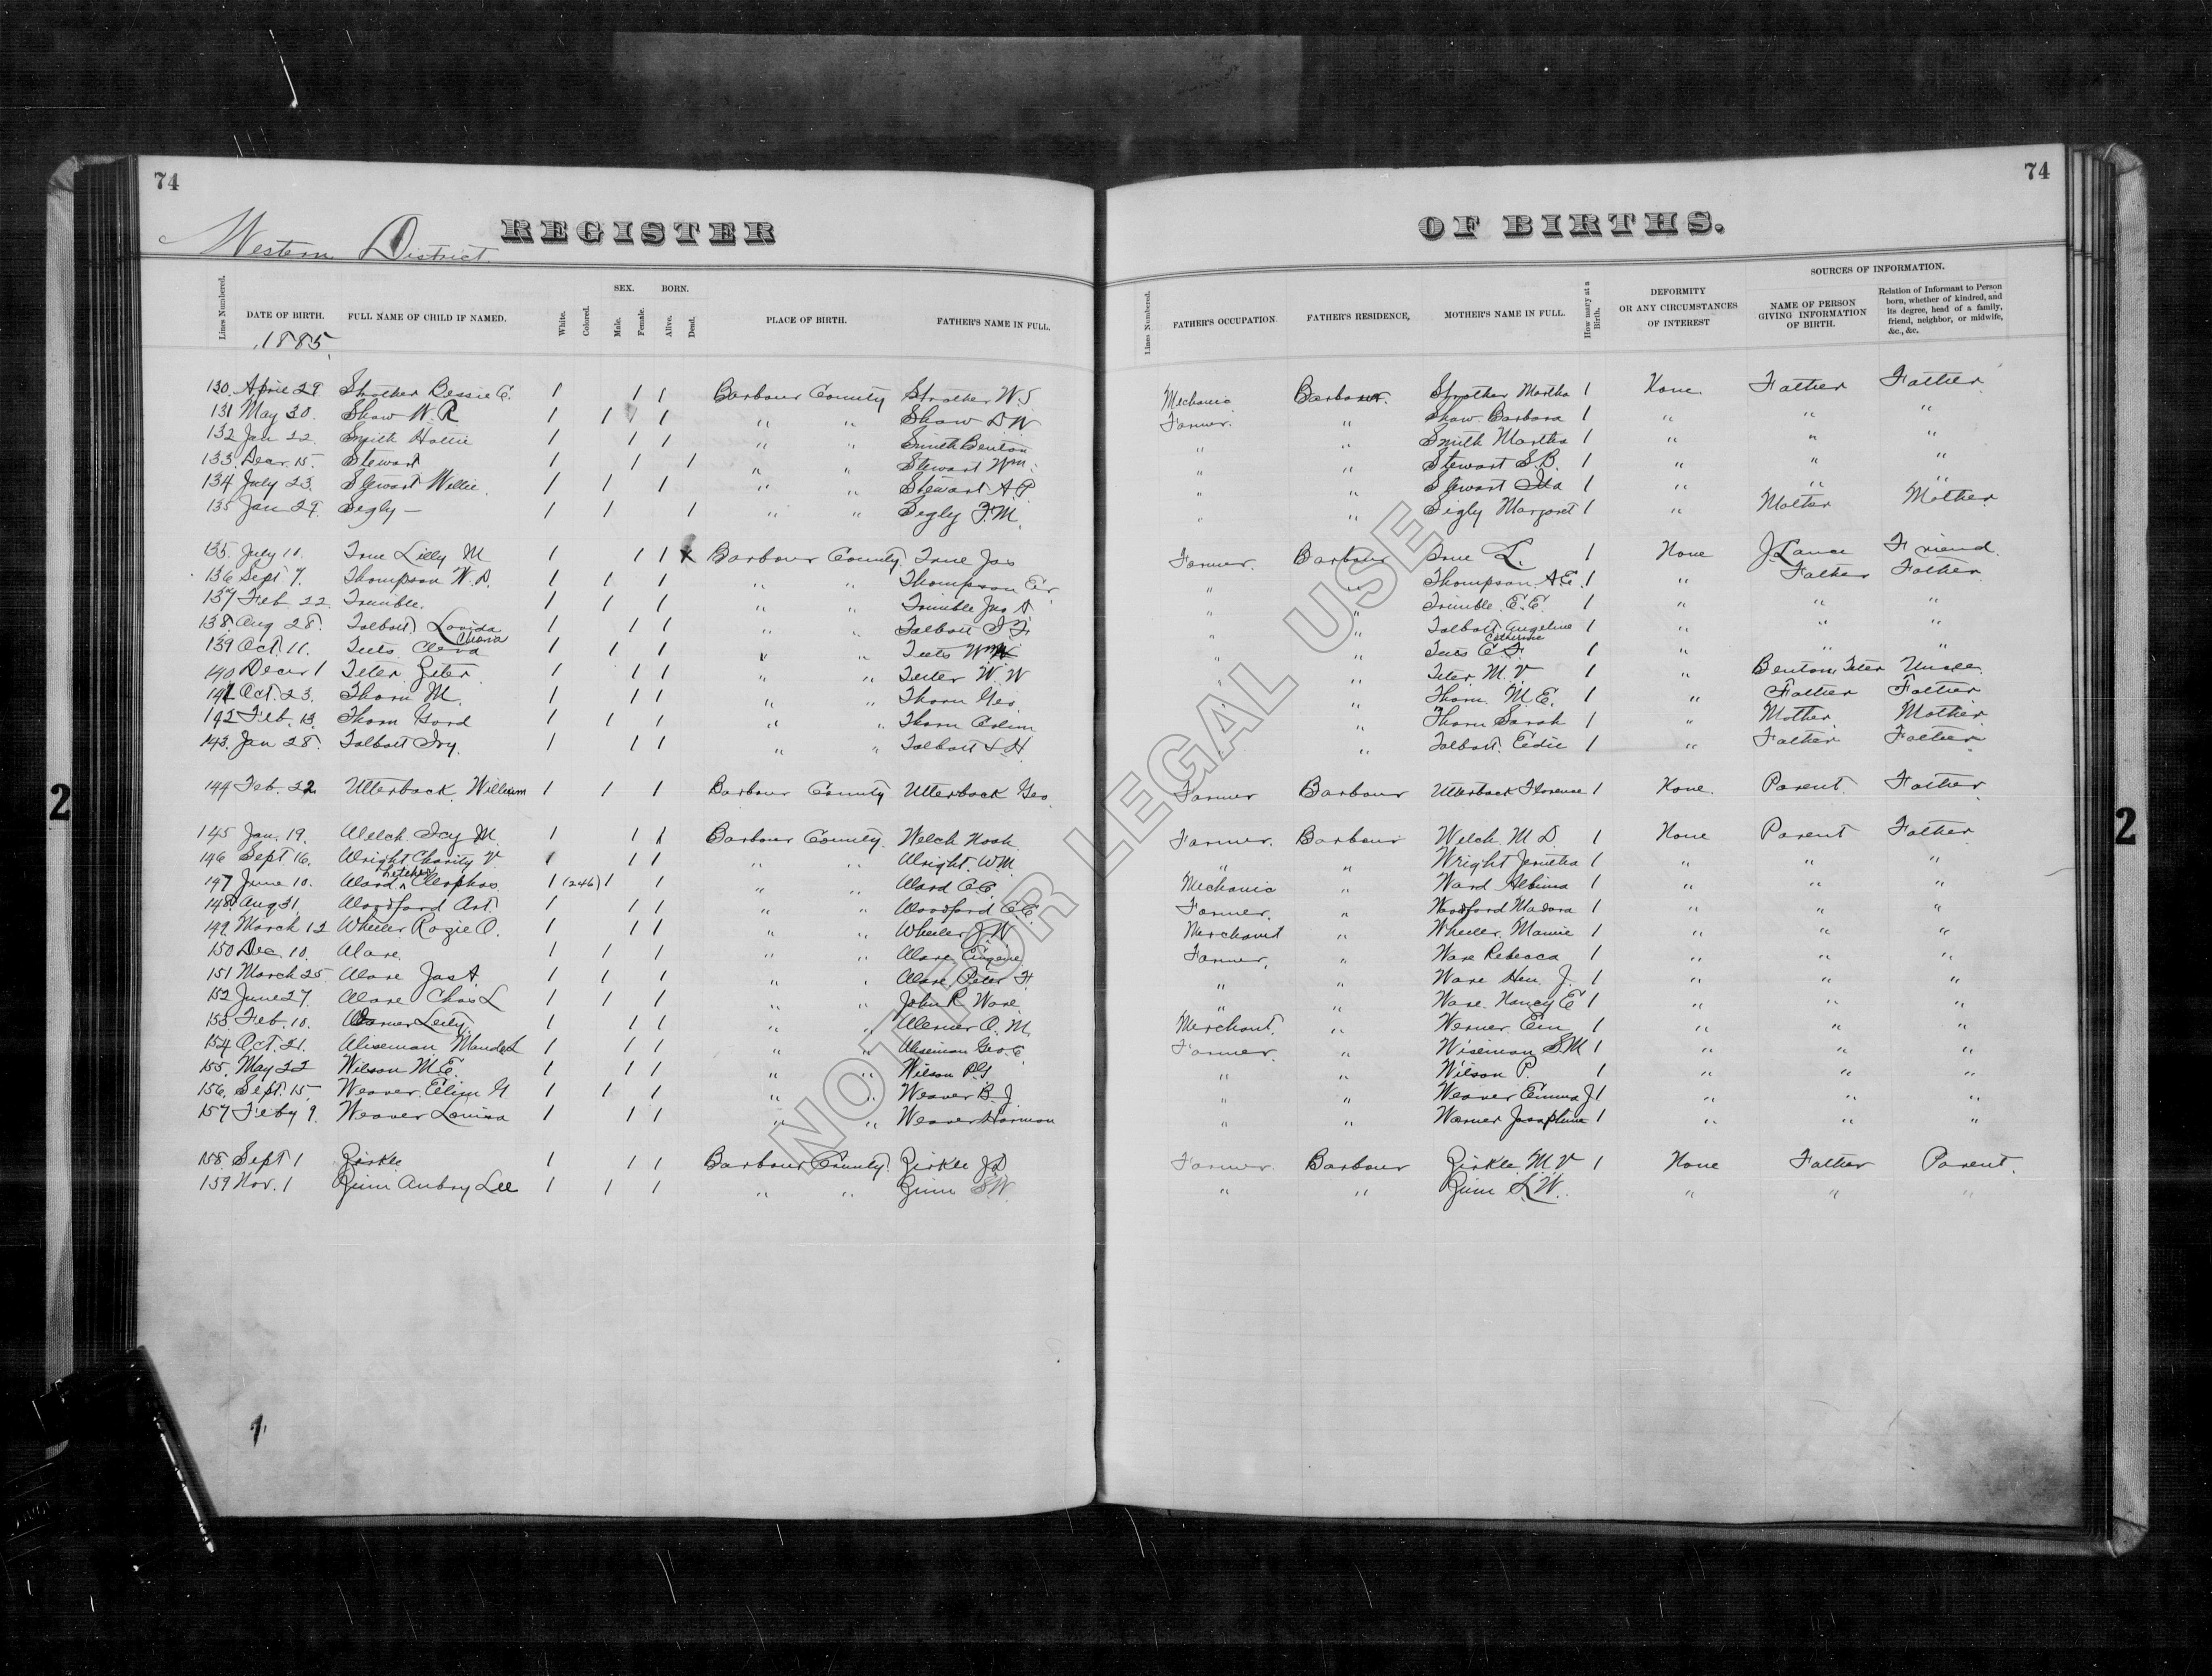 74
74
REGISTER
OF BIRTHS.
Western District
Lines Numbered. DATE OF BIRTH. FULL NAME OF CHILD IF NAMED. White. Colored. SEX. Male. Female. BORN. Alive. Dead. PLACE OF BIRTH. FATHER'S NAME IN FULL.
Lines Numbered. FATHER'S OCCUPATION. FATHER'S RESIDENCE, MOTHER'S NAME IN FULL. How many at a Birth. DEFORMITY OR ANY CIRCUMSTANCES OF INTEREST SOURCES OF INFORMATION. NAME OF PERSON GIVING INFORMATION OF BIRTH. Relation of Informant to Person born, whether of kindred, and its degree, head of a family, friend, neighbor, or midwife, &c., &c.
1885
130. April 29 Strother Bessie C. 1 1 1 Barbour County Strother W.S. Mechanic Barbour Strother Martha 1 None Father Father
131 May 30. Shaw W.R 1 1 1 " " Shaw D W Farmer. " Shaw Barbara 1 " " "
132 Jan 22. Smith Hattie 1 1 1 " " Smith Benton " " Smith Martha 1 " " "
133. Decr. 15. Stewart 1 1 1 " " Stewart Wm. " " Stewart S.B. 1 " " "
134 July 23. Stewart Willie 1 1 1 " " Stewart A.P. " " Stewart Ida 1 " " "
135 Jan 29. Segly — 1 1 1 " " Segly F.M. " " Sigly Margaret 1 " Mother Mother
135. July 11. True Lilly M 1 1 1 x Barbour County True Jas Farmer. Barbour True L. 1 None J. Lance Friend.
136 Sept 7. Thompson W.D. 1 1 1 " " Thompson " " Thompson A.E. 1 " Father Father
137 Feb. 22. Trimble. 1 1 1 " " Trimble Jas A " " Trimble E.E. 1 " " "
138. Aug 28. Talbott, Lovida 1 1 1 " " Talbott " " Talbott Angeline 1 " " "
139 Oct. 11. Teets Cleva 1 1 1 " " Teets Wm " " Catherine 1 " " "
140 Decr 1 Teter 1 1 1 " " Teeter W. W " " Teter M. V 1 " Benton Teter Uncle.
141 Oct. 23. Thorn M. 1 1 1 " " Thorn Geo. " Thorn M.E. 1 " Father Father
142 Feb. 13. Thorn Gord 1 1 1 " " Thorn " Thorn Sarah 1 " Mother Mother
143. Jan 28. Talbott Ivy. 1 1 1 " " Talbott " Talbott 1 " Father Father
144 Feb. 22 Utterback William 1 1 1 Barbour County Utterback Geo. Farmer Barbour Utterback Florence 1 None. Parent. Father
145 Jan. 19. Welch Icy M. 1 1 1 Barbour County. Welch Noah. Farmer. Barbour Welch M D. 1 None Parent Father
146 Sept 16. Wright Charity V 1 1 1 " " Wright W.M. " " Wright 1 " " "
147 June 10. Ward Cleophas 1 (246) 1 1 " " Ward C.C. Mechanic " Ward Albina 1 " " "
148. Aug 31. Woodford Art. 1 1 1 " " Woodford Farmer. " Woodford Madora 1 " " "
149. March 12 Wheeler Rozie O. 1 1 1 " " Wheeler J.W Merchant " Wheeler Mamie 1 " " "
150 Dec. 10. Ware. 1 1 1 " " Ware Eugene Farmer. " Ware Rebecca 1 " " "
151 March 25 Ware Jas A. 1 1 1 " " Ware Peter F. " " Ware J. 1 " " "
152 June 27. Ware Chas L 1 1 1 " " John R Ware " " Ware Nancy E 1 " " "
153. Feb. 10. 1 1 1 " " Werner O. M. Merchant. " Werner Em 1 " " "
154 Oct. 21. Wiseman Manda L 1 1 1 " " Wiseman Geo. C. Farmer. " Wiseman S.M 1 " " "
155. May 22 Wilson M.E. 1 1 1 " " Wilson P.G " " Wilson P. 1 " " "
156. Sept. 15. Weaver 1 1 1 " " Weaver B.J. " " Weaver Emma J 1 " " "
157 Feby 9. Weaver Louisa 1 1 1 " " Weaver Harman " " Josephine 1 " " "
158. Sept 1 Zirkle 1 1 1 Barbour County. Zirkle Farmer. Barbour Zirkle M. V 1 None Father Parent.
159 Nov. 1 Zinn Aubry Lee 1 1 1 " " Zinn S.W. " " Zinn L.W. " " "
2
2
NOT FOR LEGAL USE